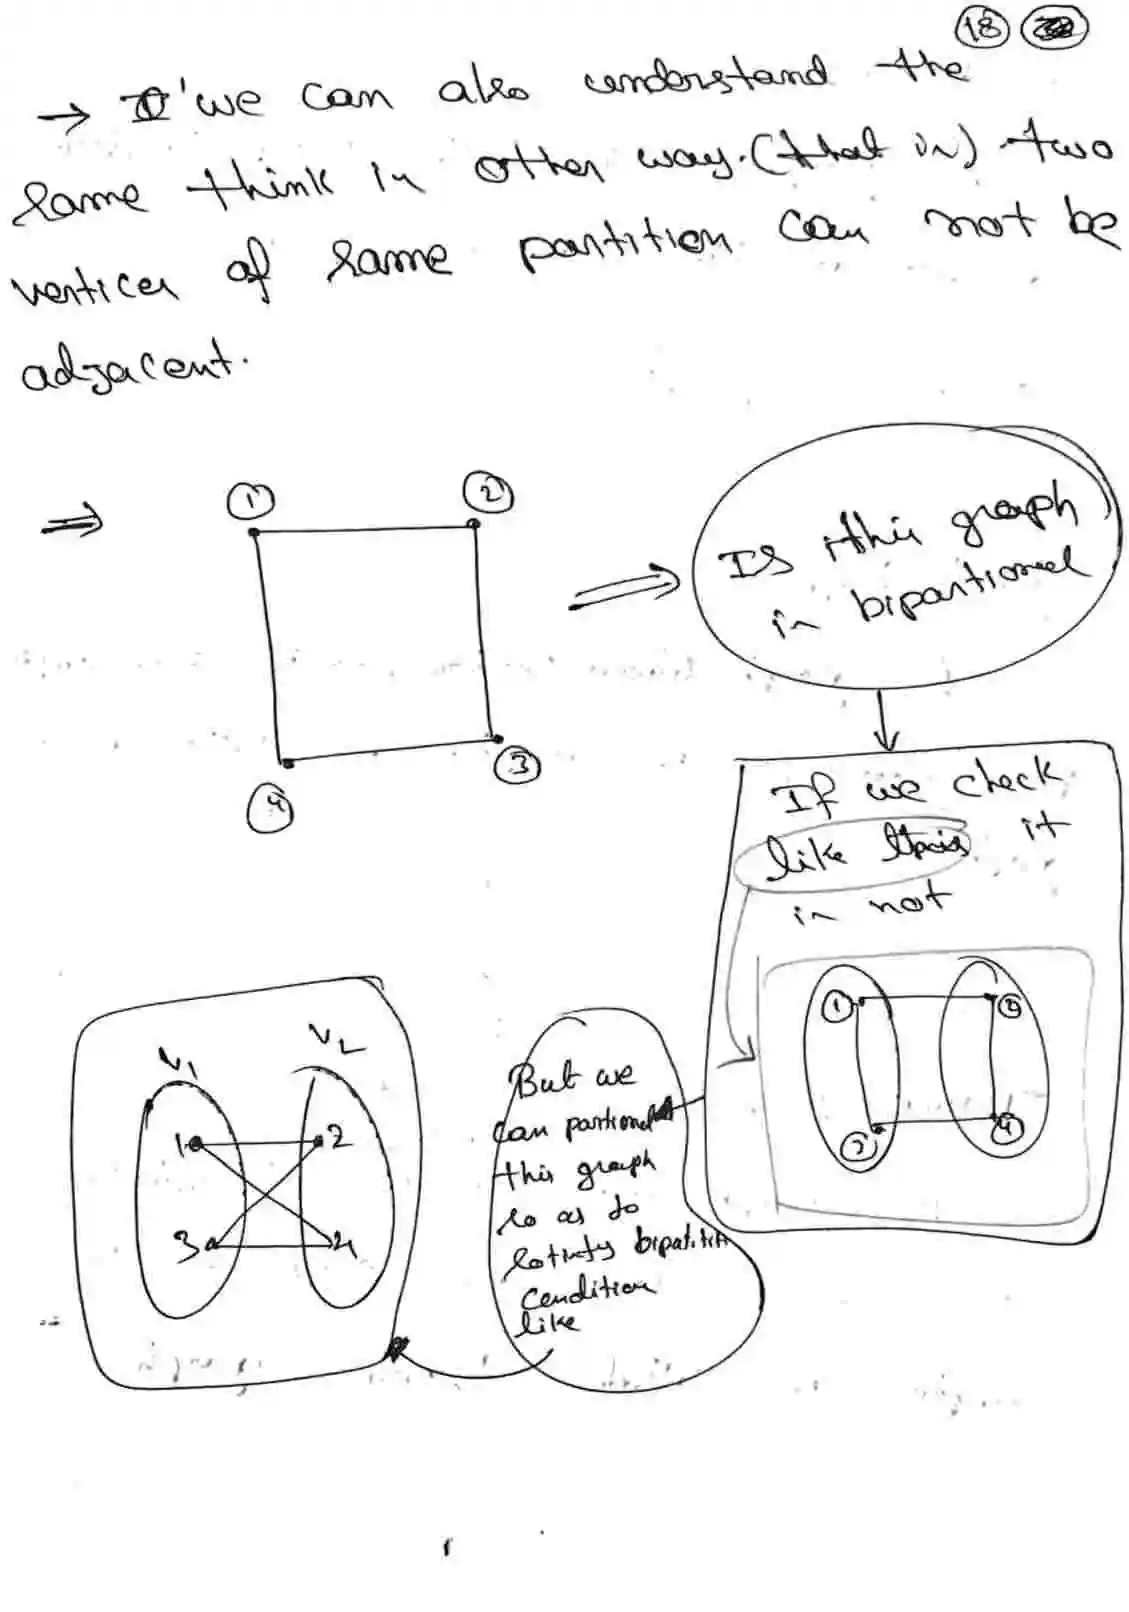 18
→ we can also understand the
same think in other way. (that is) two
vertices of same partition can not be
adjacent.
⇒
1
2
3
4
⇒
Is this graph
is bipartioned
If we check
like this it
is not
1
4
V1
V2
1
2
3
4
But we
can partioned
this graph
so as to
satisfy
condition
like